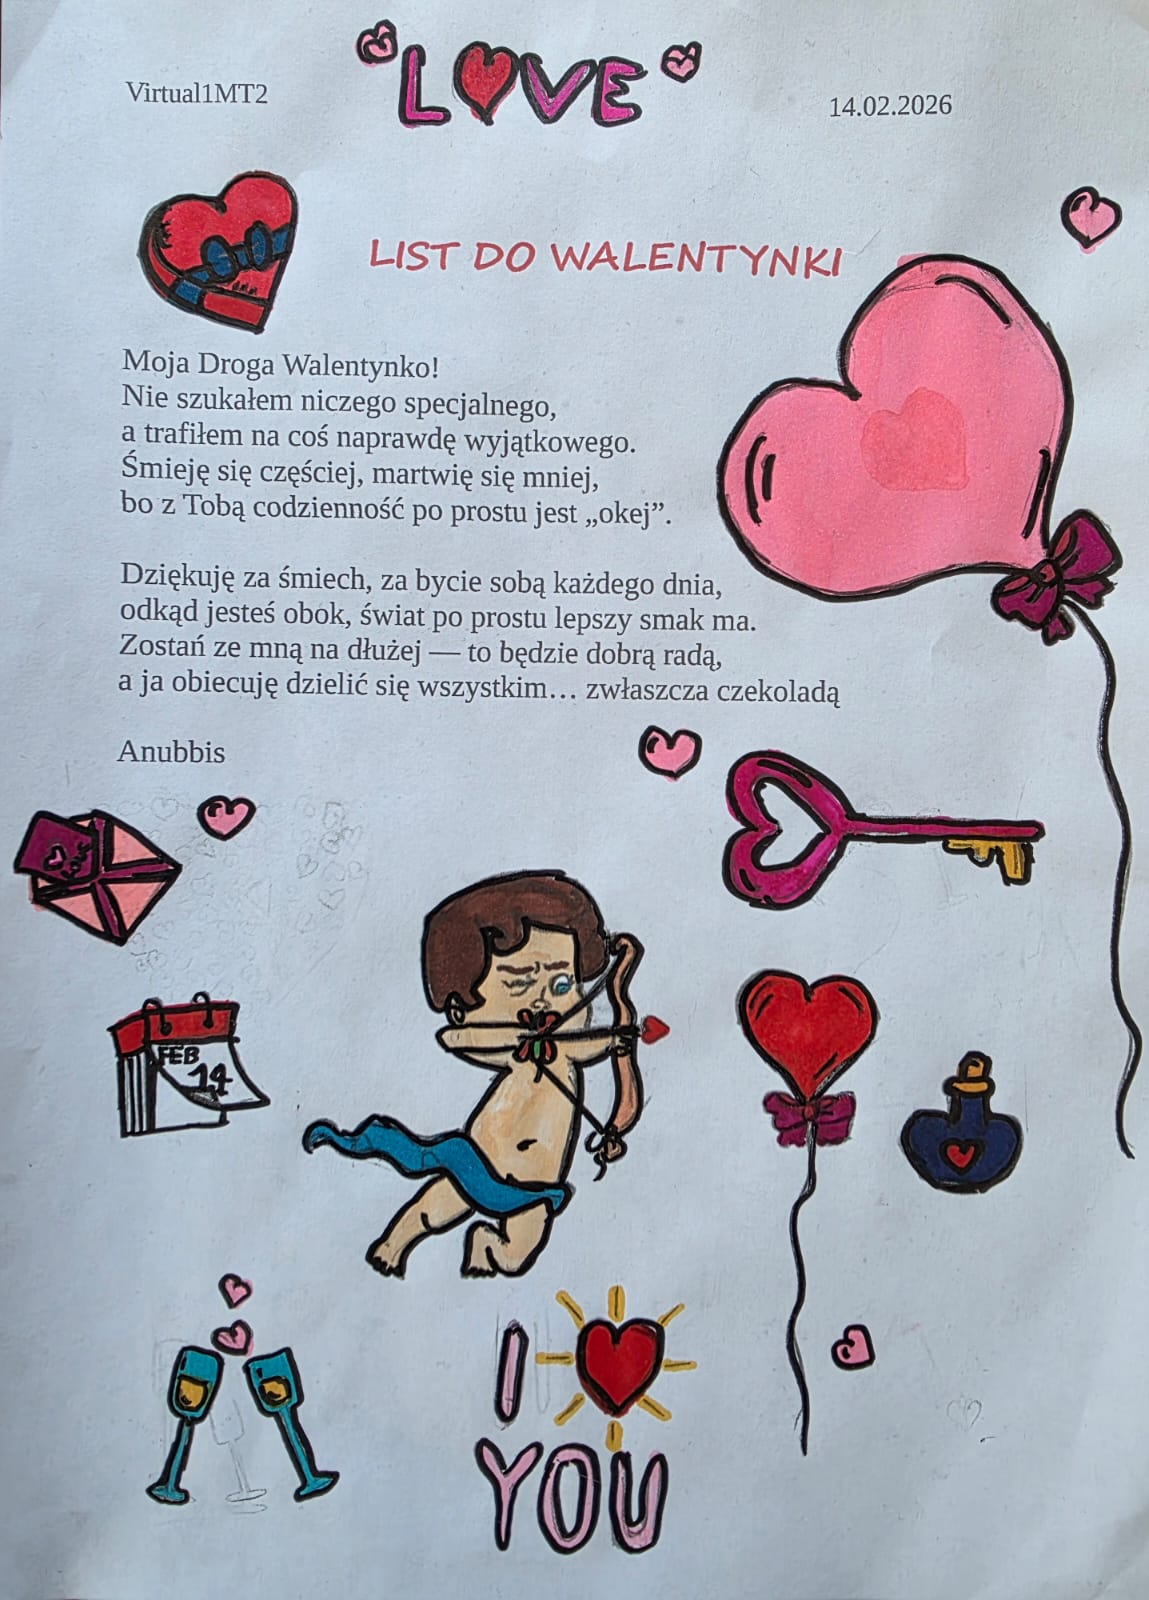 "LOVE"
Virtual1MT2
14.02.2026
LIST DO WALENTYNKI
Moja Droga Walentynko!
Nie szukałem niczego specjalnego,
a trafiłem na coś naprawdę wyjątkowego.
Śmieję się częściej, martwię się mniej,
bo z Tobą codzienność po prostu jest „okej”.
Dziękuję za śmiech, za bycie sobą każdego dnia,
odkąd jesteś obok, świat po prostu lepszy smak ma.
Zostań ze mną na dłużej — to będzie dobrą radą,
a ja obiecuję dzielić się wszystkim… zwłaszcza czekoladą
Anubbis
FEB
14
I
YOU